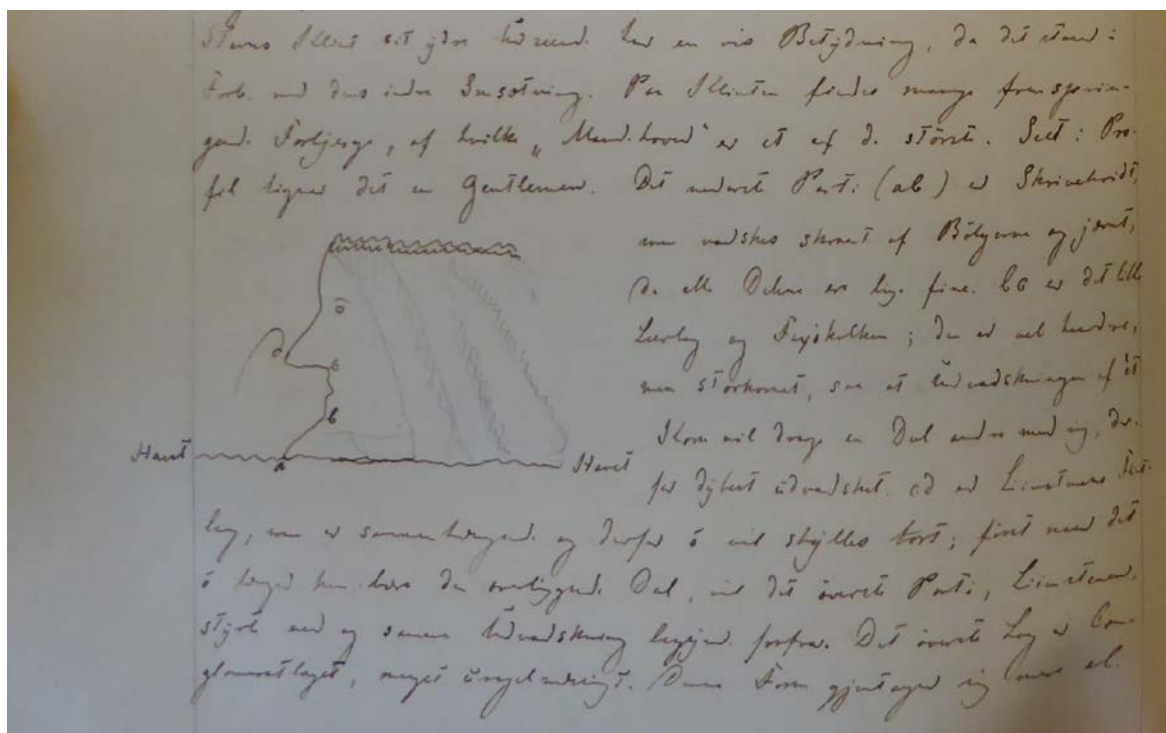 Stevns Klint sit ydre Udseend. har en vis Betydning, da det staar i
Forb. med dens indre Sammensætning. Paa Klinten findes mange fremsprin-
gend. Forbjerge, af hvilke „Mand.hoved" er et af d. störste. Seet i Pro-
fil ligner det en Gentleman. Det nederste Parti (ab) er Skrivekridt,
som vadskes skraat af Bölgerne og jevnt,
da alle Delene ere lige fine. bc er det lille
Lerlag og Faxökalken; den er vel haardere,
men storkornet, saa at Udvadskningen af ét
Korn vil drage en Del andre med sig, der-
for dybere üdvadsket. cd er Limstenens
lag, som er sammenhængend. og derfor ö vil skylles bort; först naar det
ö længer kan bære den overliggend. Del, vil det överste Parti, Limstenen,
styrte ned og samme Udvadskning begynd. forfra. Det överste Lag er Con-
glomeratlaget, meget üregelmæssigt. Denne Form gjentager sig mere el.
a
b
c
d
Havet
Havet